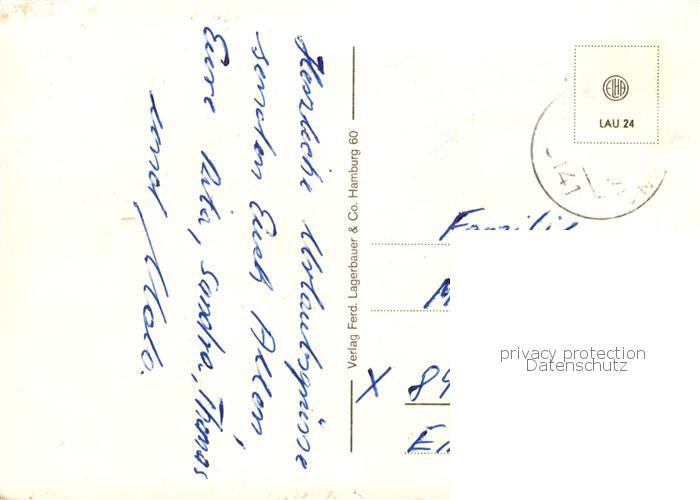 Herzliche Urlaubsgrüsse
senden Euch Allen,
Eure Rita, Sandra, Thomas
und
Verlag Ferd. Lagerbauer & Co. Hamburg 60
ELHA
LAU 24
141
Familie
M
X 89
privacy protection
Datenschutz